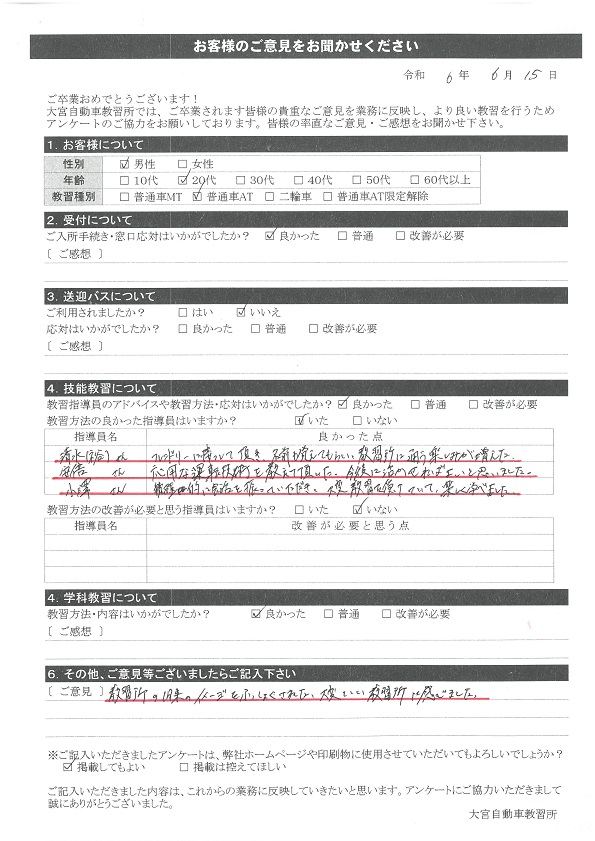 お客様のご意見をお聞かせください
令和 6 年 6 月 15 日
ご卒業おめでとうございます！
大宮自動車教習所では、ご卒業されます皆様の貴重なご意見を業務に反映し、より良い教習を行うため
アンケートのご協力をお願いしております。皆様の率直なご意見・ご感想をお聞かせ下さい。
1. お客様について
性別 ☑ 男性 □ 女性
年齢 □ 10代 ☑ 20代 □ 30代 □ 40代 □ 50代 □ 60代以上
教習種別 □ 普通車MT ☑ 普通車AT □ 二輪車 □ 普通車AT限定解除
2. 受付について
ご入所手続き・窓口応対はいかがでしたか？ ☑ 良かった □ 普通 □ 改善が必要
〔 ご感想 〕
3. 送迎バスについて
ご利用されましたか？ □ はい ☑ いいえ
応対はいかがでしたか？ □ 良かった □ 普通 □ 改善が必要
〔 ご感想 〕
4. 技能教習について
教習指導員のアドバイスや教習方法・応対はいかがでしたか？ ☑ 良かった □ 普通 □ 改善が必要
教習方法の良かった指導員はいますか？ ☑ いた □ いない
指導員名 良かった点
清水 さん フレンドリーに接して頂き、名前も覚えてもらい、教習所に通う楽しみが増えた。
さん 応用な運転技術を教えて頂いた。今後に活かせればよいと思いました。
小澤 さん 的に会話を振っていただき、大変教習を受けていて、楽しく学べました。
教習方法の改善が必要と思う指導員はいますか？ □ いた ☑ いない
指導員名 改善が必要と思う点
4. 学科教習について
教習方法・内容はいかがでしたか？ ☑ 良かった □ 普通 □ 改善が必要
〔 ご感想 〕
6. その他、ご意見等ございましたらご記入下さい
〔 ご意見 〕 教習所の旧来のイメージをふっしょくされた、大変いい教習所に感じました。
※ご記入いただきましたアンケートは、弊社ホームページや印刷物に使用させていただいてもよろしいでしょうか？
☑ 掲載してもよい □ 掲載は控えてほしい
ご記入いただきました内容は、これからの業務に反映していきたいと思います。アンケートにご協力いただきまして
誠にありがとうございました。
大宮自動車教習所